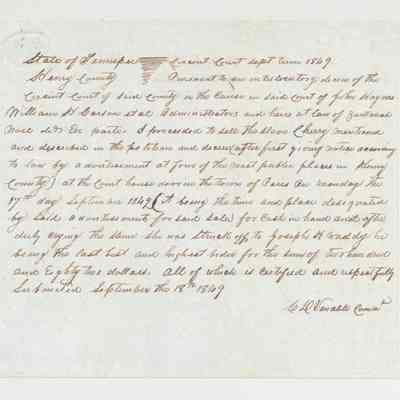 State of Tennessee Circuit Court Sept term 1849
Henry County Pursuant to an interlocutory decree of the
Circuit Court of said County in the Cause in said Court of John Wagner
William H Carson et al administrators and heirs at law of
decd Ex parte I proceeded to sell the slave Cherry mentioned
and described in the petition and decree (after first giving notice according
to law by advertisement at four of the most public places in Henry
County) at the Court house door in the town of Paris on monday the
17th day September 1849 (it being the time and place designated
by said advertisements for said sale) for Cash in hand and after
duly crying the same she was struck off to Joseph H Waddy he
being the last best and highest bidder for the sum of two hundred
and Eighty two dollars. All of which is certified and respectfully
Submitted September the 18th 1849
Venable Comr